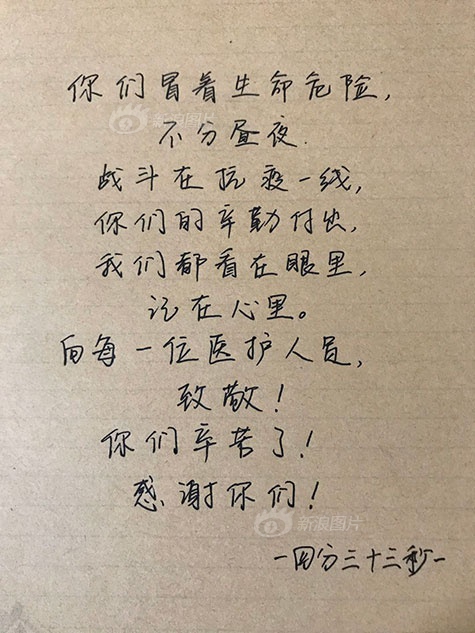 你们冒着生命危险，
不分昼夜.
战斗在抗疫一线，
你们的辛勤付出，
我们都看在眼里，
记在心里。
向每一位医护人员，
致敬！
你们辛苦了！
感谢你们！
-四分三十三秒-
新浪图片
新浪图片